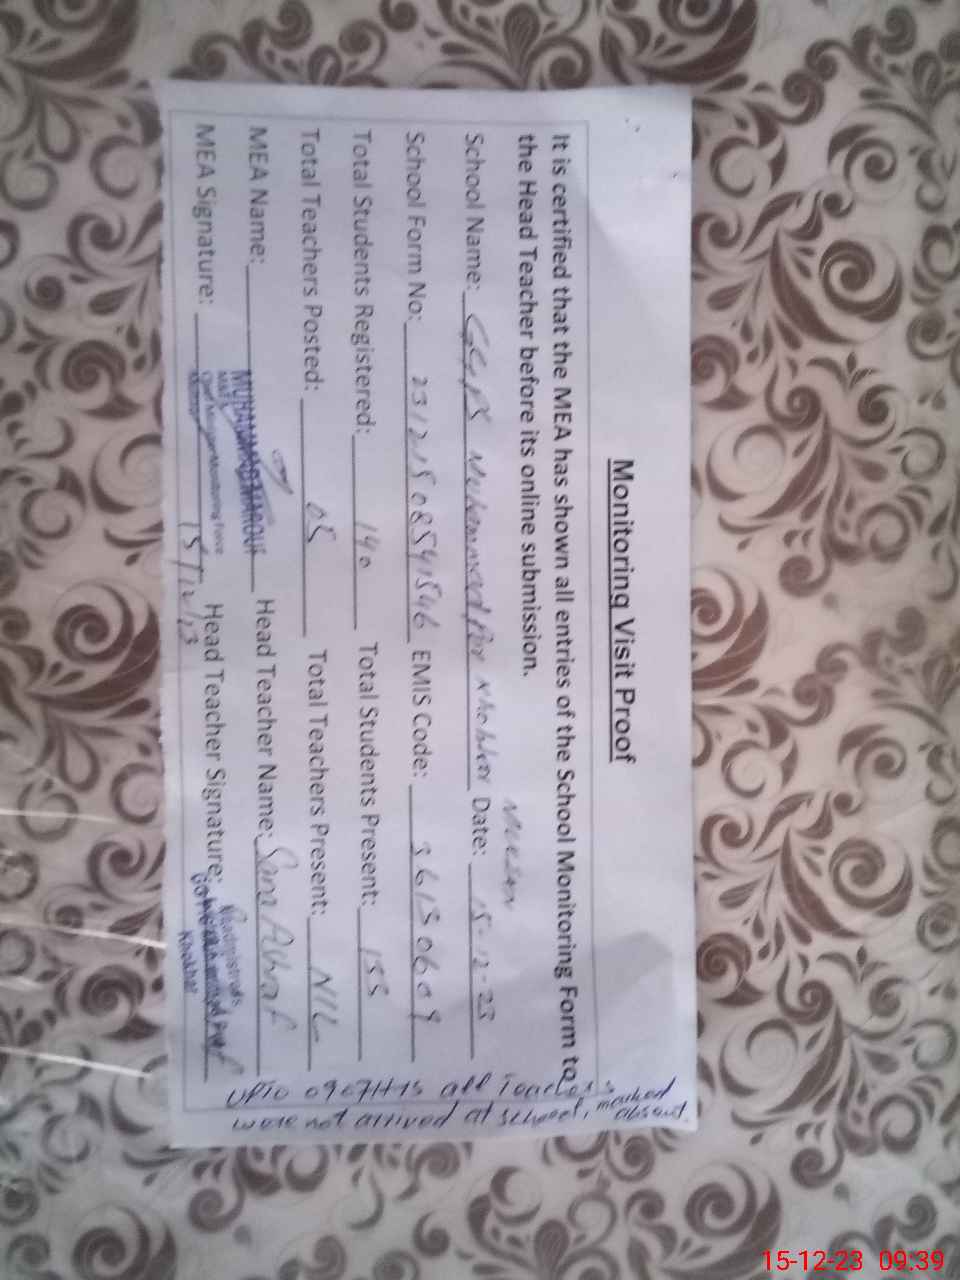 Monitoring Visit Proof
It is certified that the MEA has shown all entries of the School Monitoring Form to
the Head Teacher before its online submission.
School Name: GGPS Muhammad Pur Khokhar Date: 15-12-23
School Form No: EMIS Code: 36130609
Total Students Registered: 190 Total Students Present: 155
Total Teachers Posted: 05 Total Teachers Present: NIL
MEA Name: MUHAMMAD MAROUF Head Teacher Name: Ashraf
MEA Signature: 15/12/23 Head Teacher Signature:
MEA
Chief Minister Monitoring Force
Headmistress
Khokhar
upto 0907Hrs all Teachers marked
were not arrived at school, absent.
15-12-23 09.39